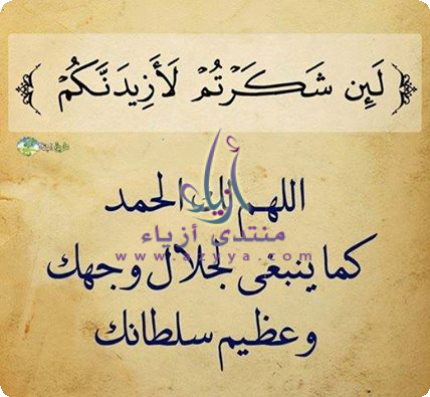 ﴿ لَئِن شَكَرْتُمْ لَأَزِيدَنَّكُمْ ﴾
أزياء
اللهم لك الحمد
منتدى أزياء
كما ينبغى لجلال وجهك
www.azyya.com
وعظيم سلطانك